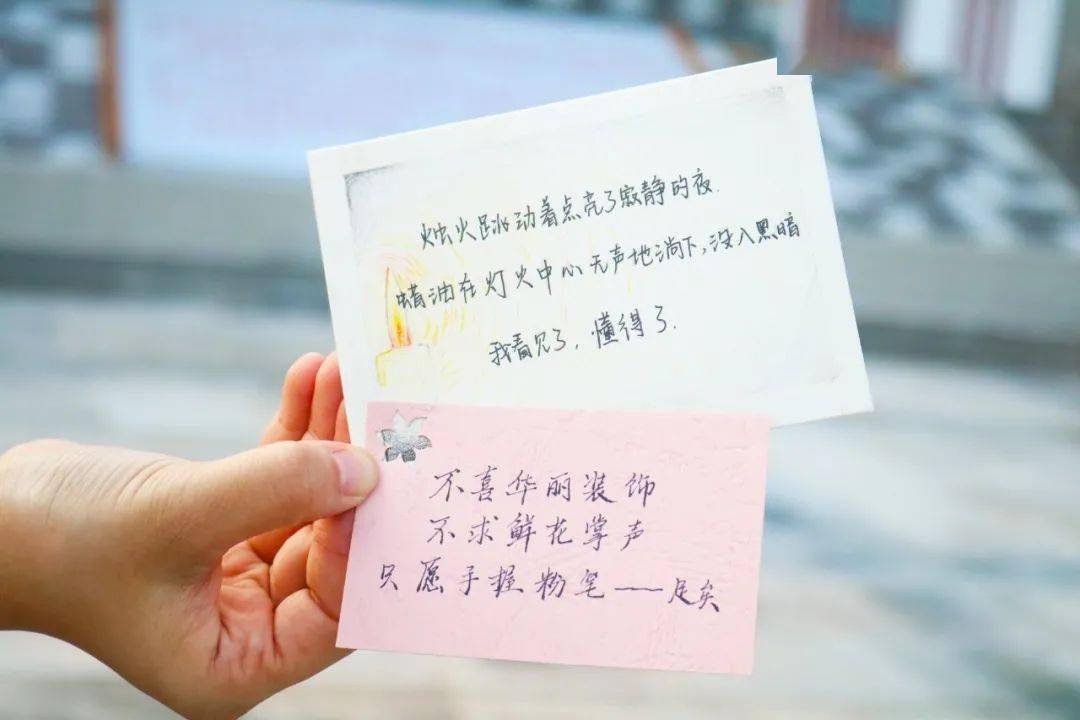 烛火跳动着点亮了寂静的夜.
蜡油在灯火中心无声地淌下,没入黑暗
我看见了,懂得了.
不喜华丽装饰
不求鲜花掌声
只愿手握粉笔——足矣